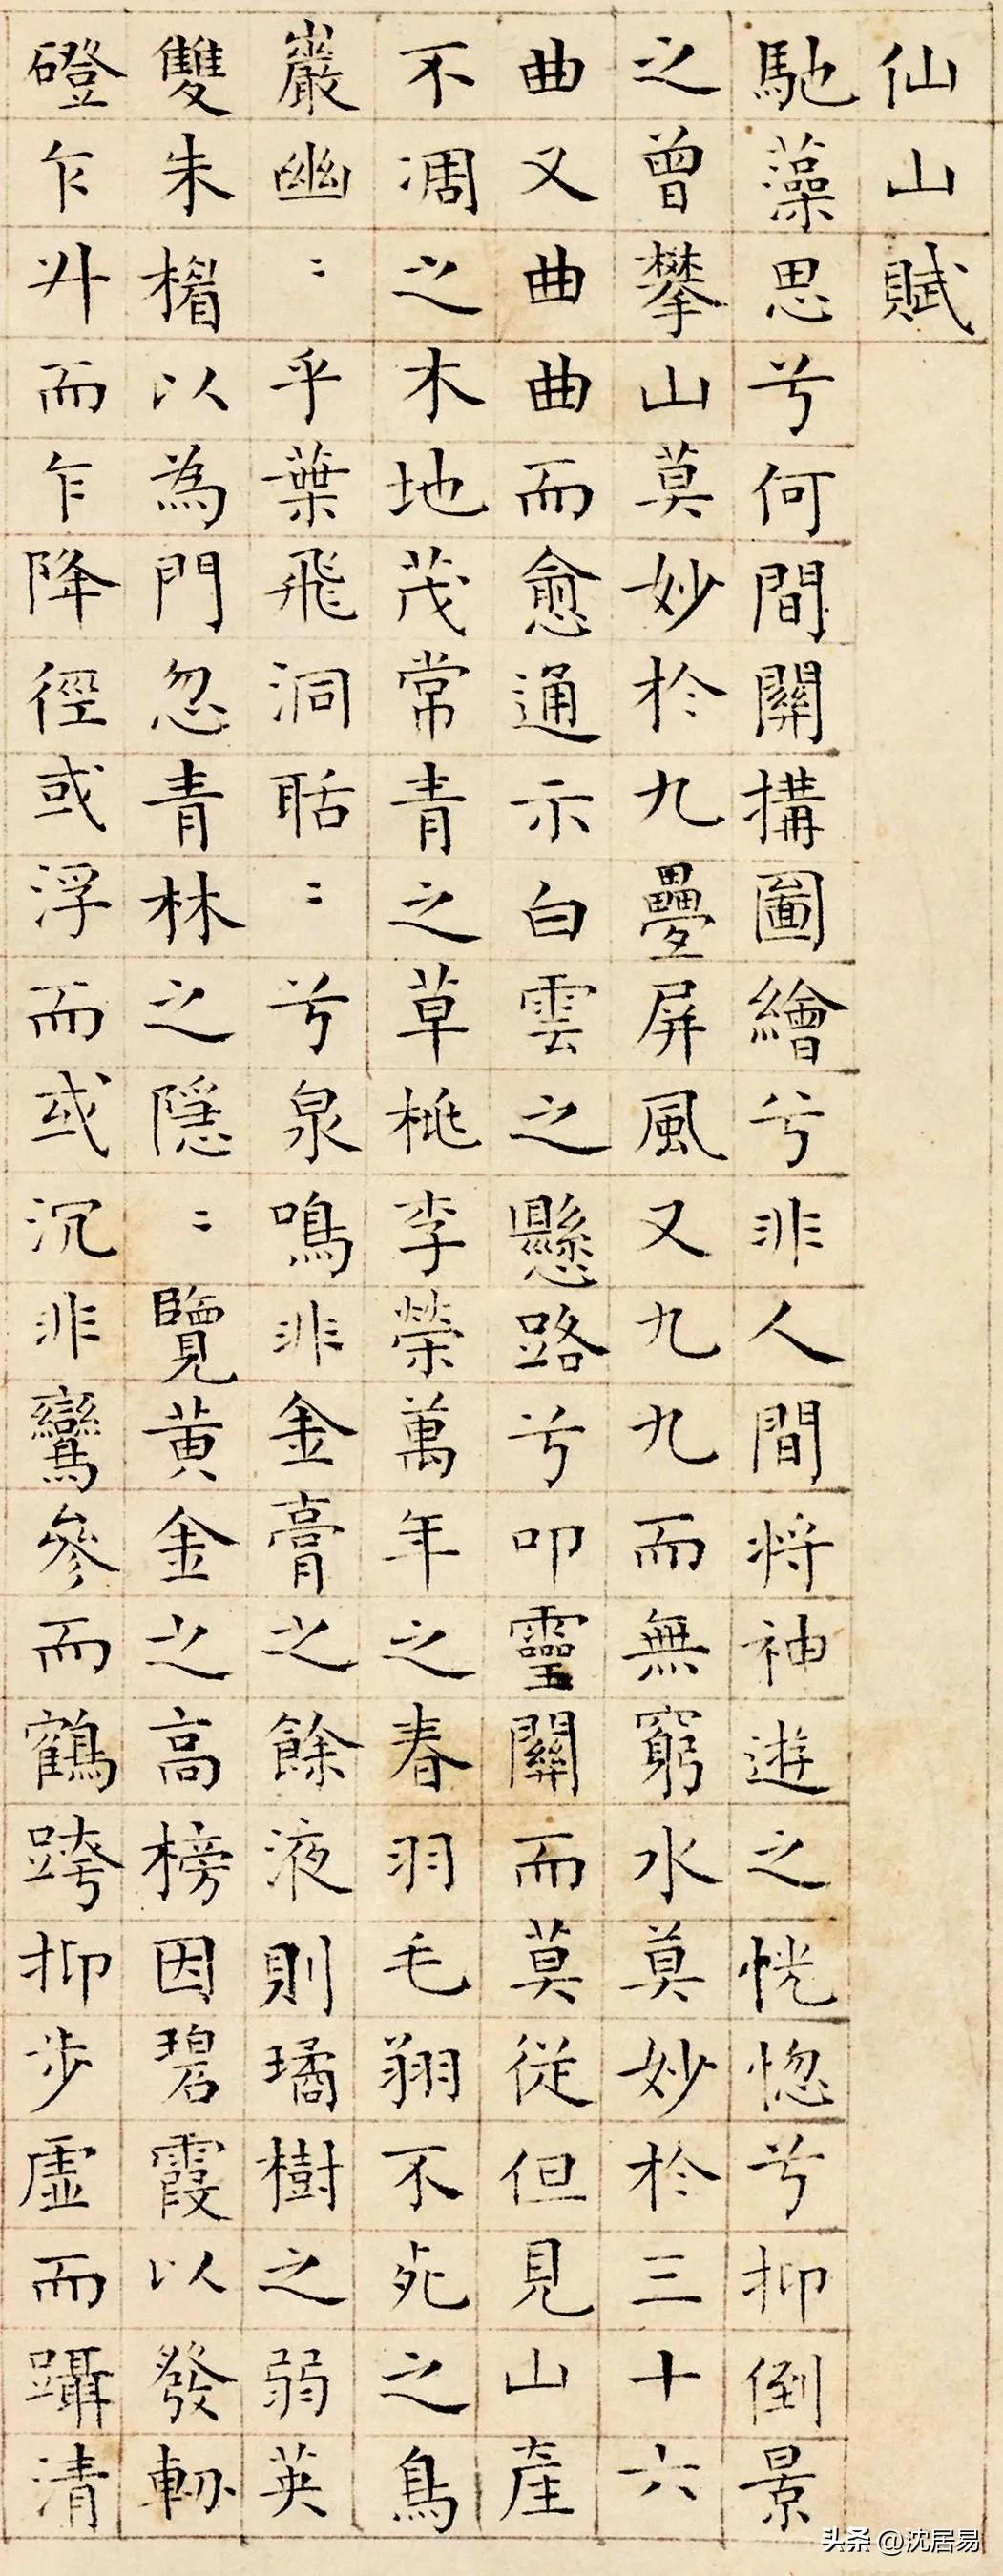 仙山賦
馳藻思兮何間關搆圖繪兮非人間将神遊之恍惚兮抑倒景
之曾攀山莫妙於九疊屏風又九九而無窮水莫妙於三十六
曲又曲曲而愈通示白雲之懸路兮叩靈關而莫從但見山產
不凋之木地茂常青之草桃李榮萬年之春羽毛翔不死之鳥
巖幽〻乎葉飛洞聒〻兮泉鳴非金膏之餘液則璚樹之弱英
雙朱楣以為門忽青林之隱〻覽黄金之高榜因碧霞以發軔
磴乍升而乍降徑或浮而或沉非鸞參而鶴跨抑步虛而躡清
头条 @沈居易